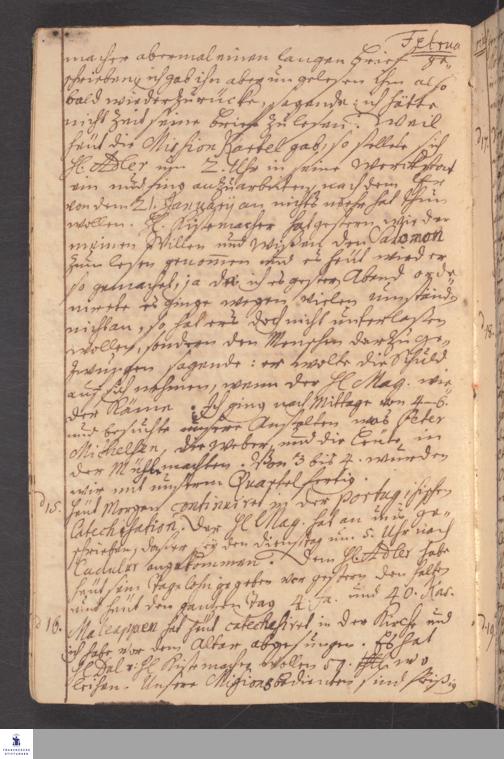 Februa
macher abermal einen langen Brief ge-
schrieben, ich gab ihn aber ungelesen ihm als-
bald wieder zurücke, sagende: ich hätte
nicht Zeit seine Briefe zu lesen. Weil
heut die Mission Bartel gab, so stellete sich
H. Adler um 2. Uhr in seine Werckstatt
ein und fing an zu arbeiten, nach dem Er
von dem 21. January an nichts mehr hat thun
wollen. H. Kistemacher hat gestern wieder
meinen Willen und Wißen den Salomon
zum lesen genomen und es heut wieder
so gemacht, ja da ich es gestern Abend
es ginge wegen vielen umständen
nicht an, so hat ers doch nicht unterlaßen
wollen, sondern den Menschen darzu ge-
zwungen sagende: er wolte die Schuld
auf sich nehmen, wenn der H. Mag. wie-
der käme. Ich ging nach Mittage von 4-6.
und besuchte unsere Anstalten, was Peter
Michelsen, die Weber, und die Leute in
der Mühl machten. Von 3 bis 4. wurden
wir mit unserm Quartel fertig.
d 15. Heut Morgen continuiret in der Portugisischen
Catechisation. Der H. Mag. hat an uns ge-
schrieben, daß er den dienstag um 5. Uhr nach
Cudulur angekommen. Dem H. Adler habe
heut sein Tagelohn gegeben vor gestern den halben
und heut den gantzen Tag 4. fa. und 40. Kas.
d 16. Maleappen hat heut catechesiret in der Kirche und
ich habe vor dem Altar abgesungen. Es hat
H. Dal v. H. Kistemacher wollen 50.
leihen. Unsere Missions Bedienten sind fleißig